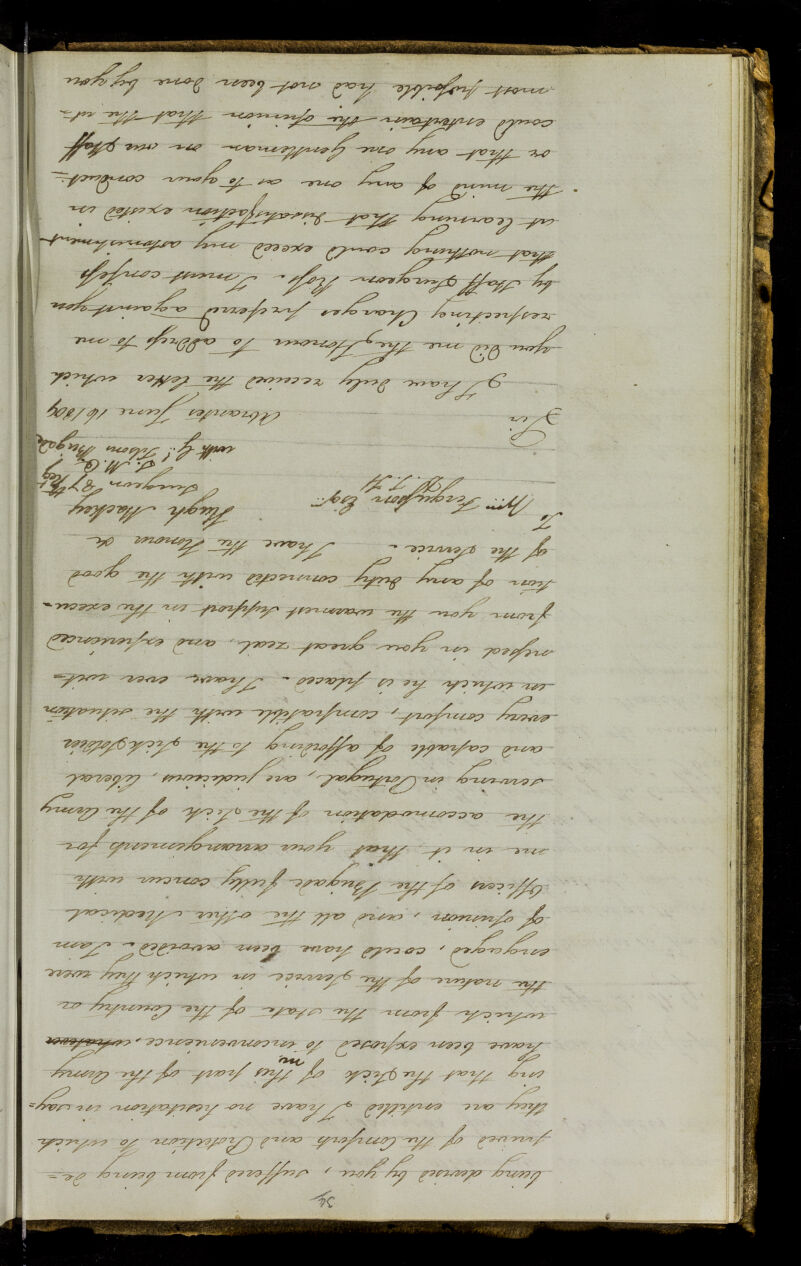 34
being devised by you, suffered from being de=
prived of the Comforts and Protection to which
they are entitled I have no hesitation in say=
ing that the Sick of this part of the Army
have been exposed to no inconvenience, whatever
which from the state of the Country or
the nature of the Service in which they were
engaged, could have been avoided. I am
of opinion, and all the other Medical
Officers of the Brigade fully concur with
me in it that your arrangements for
the accomodation of the Sick of the Army
serving in Portugal, are judicious, liberal
and capable of affording to the Sick Soldier
every comfort, compatible with the situation
in which he is placed. I have ever wit=
nessed in you great zeal, and experienced
from you the warmest support in the execu=
tion of any duty connected with the good
of the Service. I have the Honour &c
To
Wm. Fergusson Esqr. Hugh Mackey
I. H. Surgeon 87th Regt
S. M. O.
with G. Tilson's Brigade
Sir Abrantes June 16 1809
I have duly received the letter which
you did me the Honour to address to me
respecting Charges prefered against you
by Staff Surgeon Ross. I must confess
that nothing could exceed my astonishment
at learning that dissatisfaction existed in
the mind of any one as to your conduct=
or that any one Gentleman on our Staff
could entertain the opinion that the ut=
most possible had not been done by you